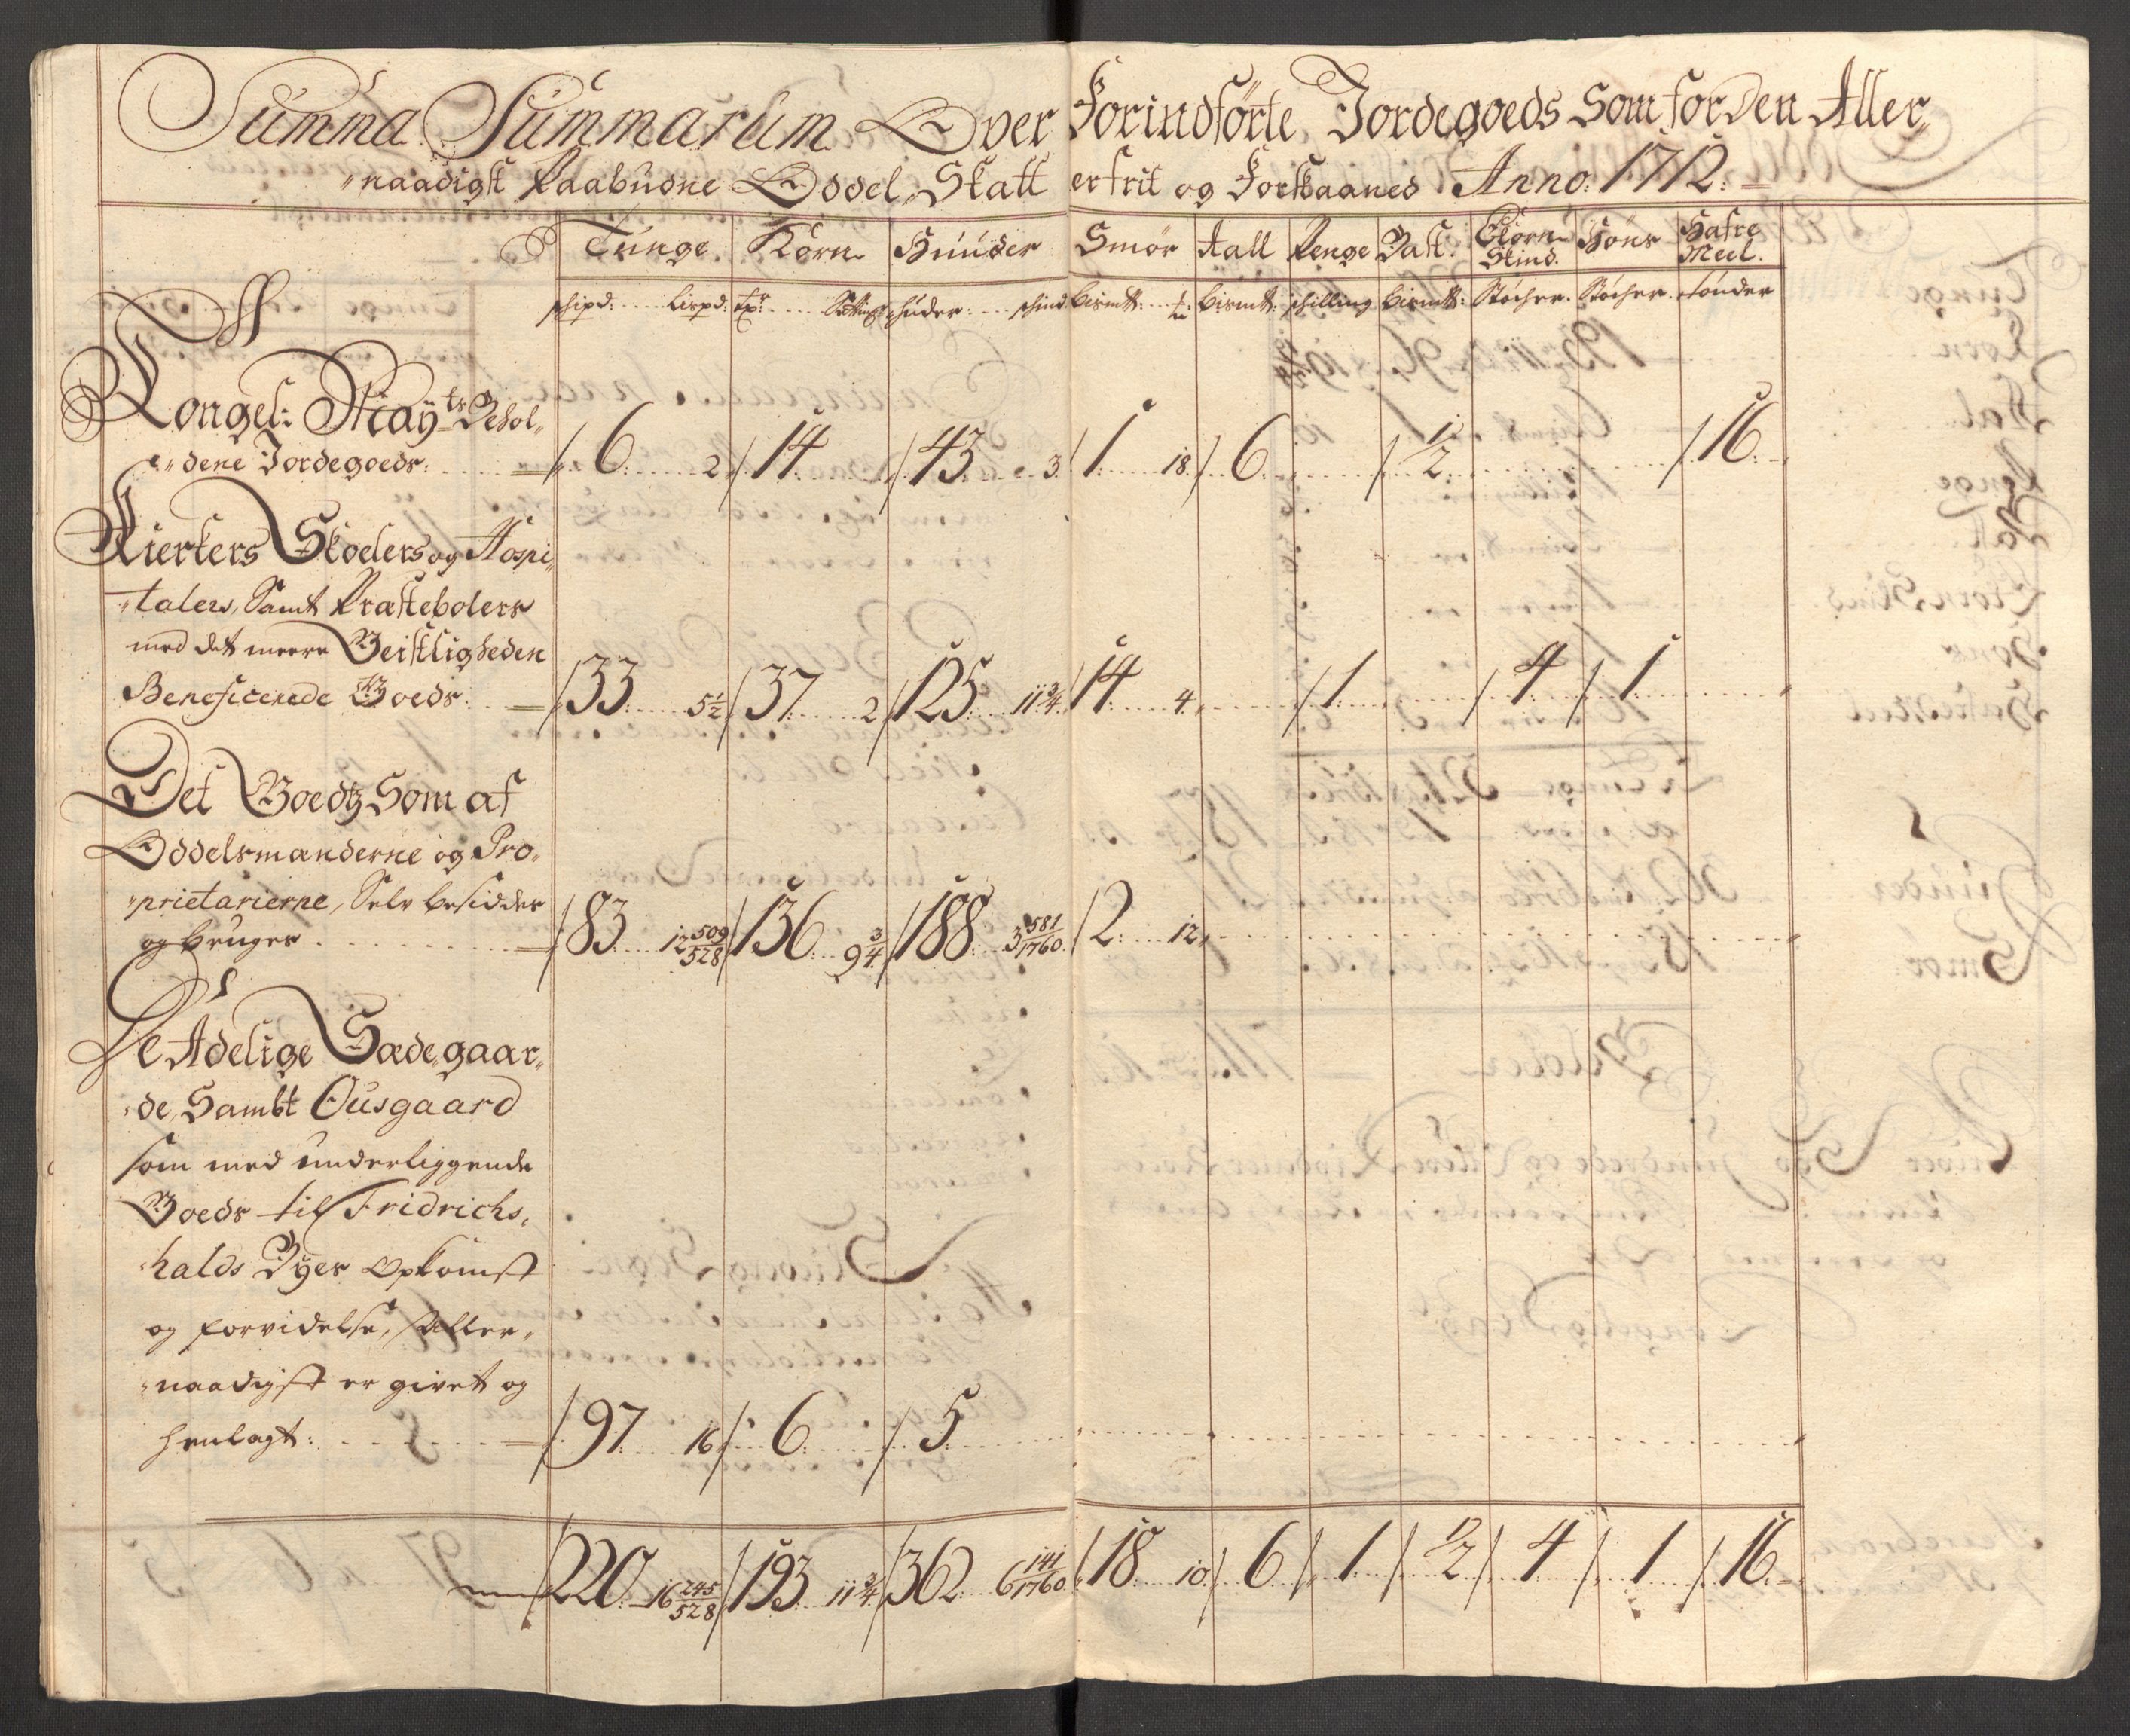 Summa Summarum Over Forindförte Jordegoeds Som for den Aller„
„naadigst Paabudne Oddel„Skatt er frit og Forskaanes Anno: 1712:
Tunge Korn Huuder Smör Aall Penge Bast Hiorn Skind. Höns Hafre Meel.
schipd: Lispd: huder: schind bismtt: bismtt: schilling bismtt: Stöcher. Stöcher. tönder
Kongel: Mayts Behol„
„dene Jordegoeds: 6 2 14 43 3 1 18 6 1/2 16
Kierkers Skoelers og Hospi„
„talers, Samt Præstebolers
med det meere Geistligheden
Beneficerede Goeds: 33 5 1/2 37 2 125 11 3/4 14 4 1 4 1
Det Goedtz Som af
Oddelsmænderne og Pro„
„prietarierne, Selv besidder
og bruger 83 12 509/528 136 9 3/4 188 3 581/1760 2 12
De Adelige Sædegaar„
„de, Sambt Ousgaard
som med underliggende
Goeds til Fridrichs„
„halds Byes Opkomst
og forvidelse, Aller„
„naadigst er givet og
henlagt: 97 16 6 5
220 16 245/528 193 11 3/4 362 6 141/1760 18 10 6 1 1/2 4 1 16